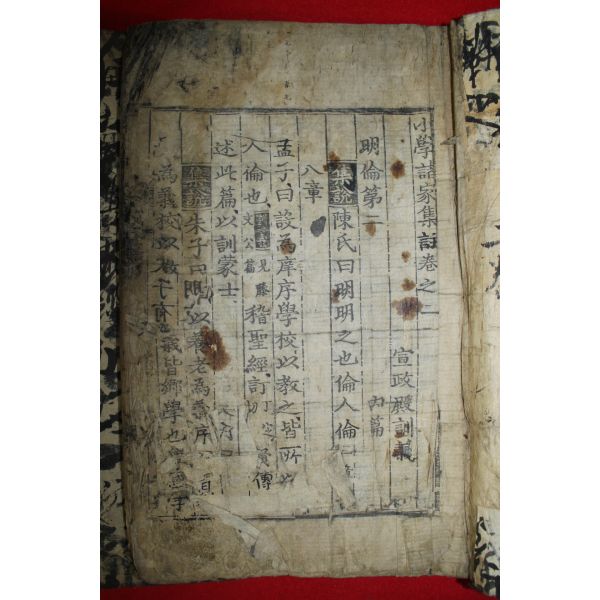 小學諸家集註卷之二
宣政殿訓義
明倫第二
內篇
集說 陳氏曰明明之也倫人倫
八章
孟子曰設爲庠序學校以敎之皆所以
人倫也 見滕文公篇 稽聖經訂賢傳
述此篇以訓蒙士
集說 朱子曰 以養老爲義序
爲義校以敎 爲義皆鄕學也學